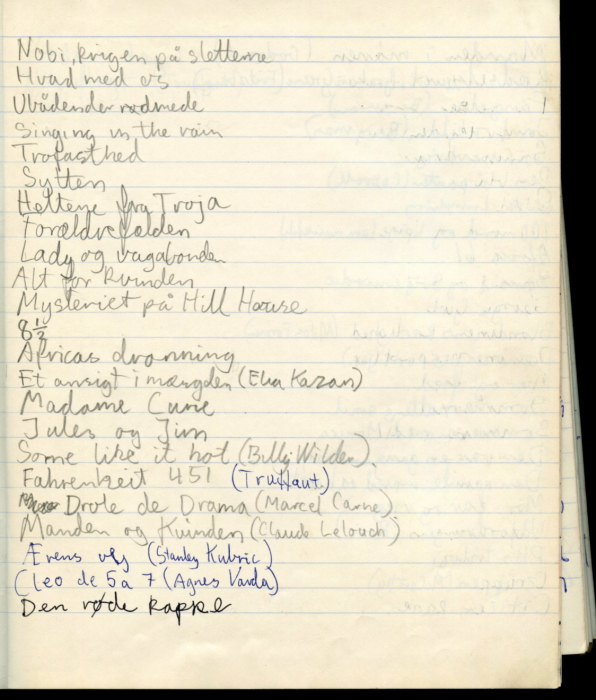 Nobi, krigen på sletterne
Hvad med os
Ubådender rødmede
Singing in the rain
Trofasthed
Sytten
Heltene fra Troja
Forældrefælden
Lady og vagabonden
Alt for kvinden
Mysteriet på Hill House
8 1/2
Africas dronning
Et ansigt i mængden (Elia Kazan)
Madame Curie
Jules og Jim
Some like it hot (Billy Wilder).
Fahrenheit 451 (Truffaut.)
Drole de Drama (Marcel Carne)
Manden og Kvinden (Claude Lelouch)
Ærens vej (Stanley Kubric)
Cleo de 5 a 7 (Agnes Varda)
Den røde kappe